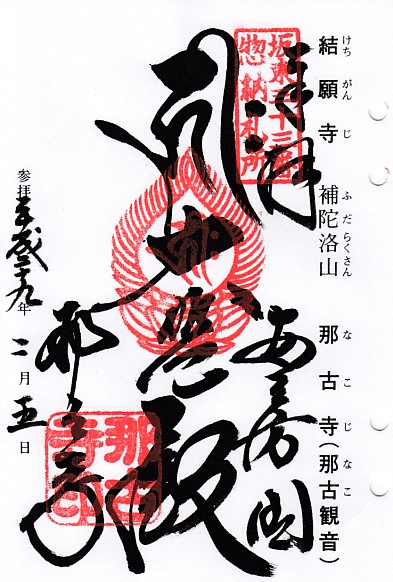 結願寺 補陀洛山 那古寺(那古観音)
けちがんじ ふだらくさん なこじなこ
坂東三十三所
惣納札所
奉拝
安房国
殿
那古寺
参拝平成十九年二月五日
那古
寺印